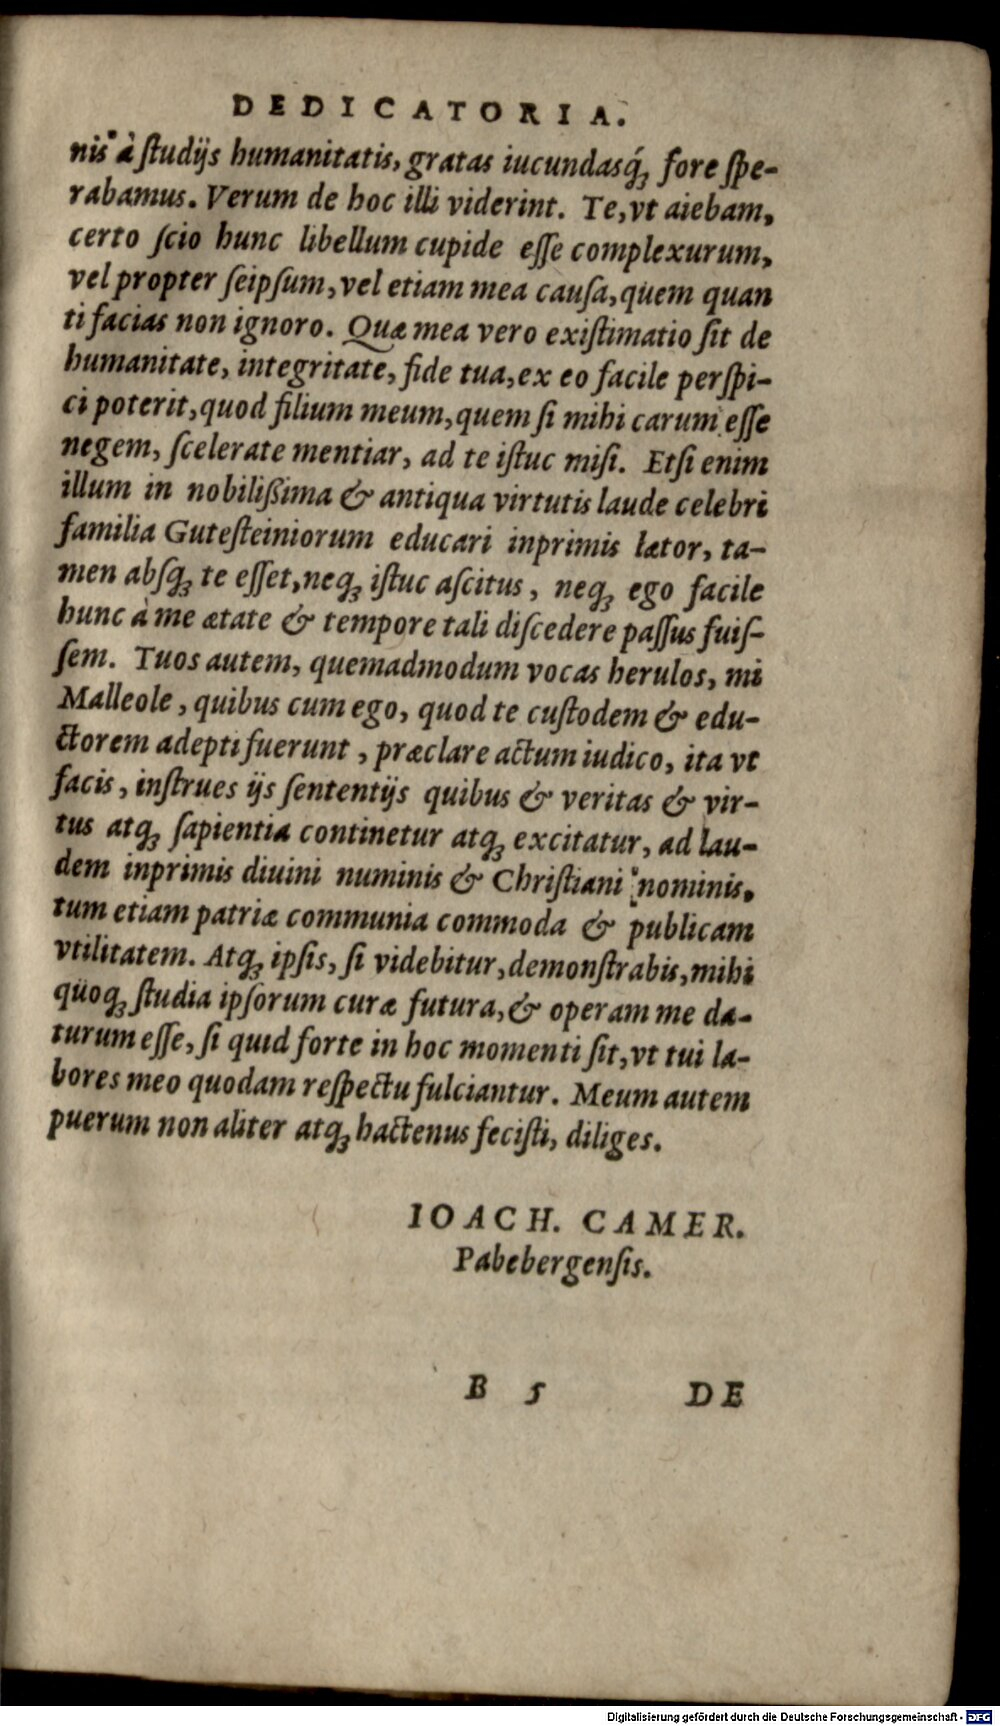 DEDICATORIA.
nis à ſtudijs humanitatis, gratas iucundasq́ꝫ fore ſpe-
rabamus. Verum de hoc illi viderint. Te, vt aiebam,
certo ſcio hunc libellum cupide eſſe complexurum,
vel propter ſeipſum, vel etiam mea cauſa, quem quan
ti facias non ignoro. Quæ mea vero exiſtimatio ſit de
humanitate, integritate, fide tua, ex eo facile perſpi-
ci poterit, quod filium meum, quem ſi mihi carum eſſe
negem, ſcelerate mentiar, ad te iſtuc miſi. Etſi enim
illum in nobilißima & antiqua virtutis laude celebri
familia Guteſteiniorum educari inprimis lætor, ta-
men abſqꝫ te eſſet, neqꝫ iſtuc aſcitus, neqꝫ ego facile
hunc à me ætate & tempore tali diſcedere paſſus fuiſ-
ſem. Tuos autem, quemadmodum vocas herulos, mi
Malleole, quibus cum ego, quod te cuſtodem & edu-
ctorem adepti fuerunt, præclare actum iudico, ita vt
facis, inſtrues ijs ſententijs quibus & veritas & vir-
tus atqꝫ ſapientia continetur atqꝫ excitatur, ad lau-
dem inprimis diuini numinis & Chriſtiani nominis,
tum etiam patriæ communia commoda & publicam
vtilitatem. Atqꝫ ipſis, ſi videbitur, demonſtrabis, mihi
quoqꝫ ſtudia ipſorum curæ futura, & operam me da-
turum eſſe, ſi quid forte in hoc momenti ſit, vt tui la-
bores meo quodam reſpectu fulciantur. Meum autem
puerum non aliter atqꝫ hactenus feciſti, diliges.
IOACH. CAMER.
Pabebergenſis.
B 5 DE
Digitalisierung gefördert durch die Deutsche Forschungsgemeinschaft - DFG